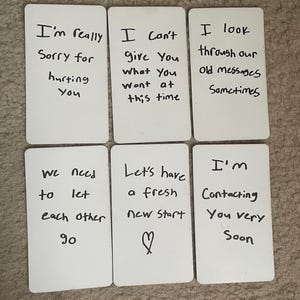 I'm really
Sorry for
hurting
you
I can't
give you
what you
want at
this time
I look
through our
old messages
sometimes
we need
to let
each other
go
Let's have
a fresh
new start
I'm
Contacting
you very
Soon